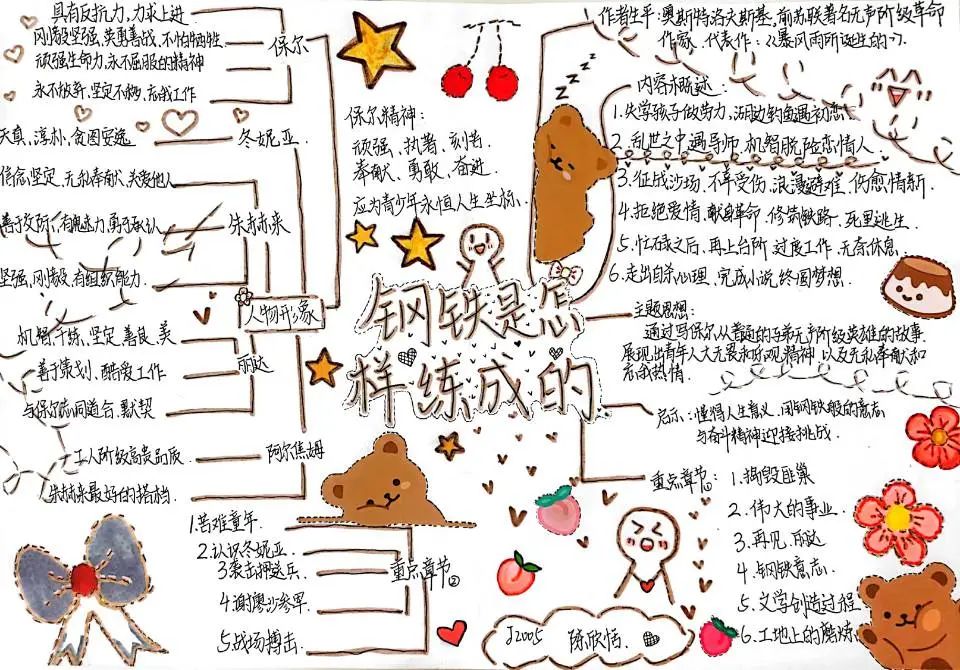 具有反抗力,力求上进
刚毅坚强,英勇善战,不怕牺牲
顽强生命力,永不屈服的精神
永不放弃,坚定不移,忘我工作
保尔
天真,淳朴,贪图安逸
冬妮亚
信念坚定,无私奉献,关爱他人
善于交际,有魄力,勇于承认
朱赫来
坚强,刚毅,有组织能力
人物形象
机智,干练,坚定,善良,美
善于策划、酷爱工作
与保尔志同道合,默契
丽达
工人阶级高贵品质
朱赫来最好的搭档
阿尔焦姆
保尔精神:
顽强、执著、刻苦
奉献、勇敢、奋进
应为青少年永恒人生坐标
钢铁是怎
样练成的
作者生平:奥斯特洛夫斯基,前苏联著名无产阶级革命
作家,代表作:《暴风雨所诞生的》
内容概述:
1.失学孩子做劳力,湖边钓鱼遇初恋
2.乱世之中遇导师,机智脱险恋情人
3.征战沙场,不幸受伤,浪漫避难,伤愈情断
4.拒绝爱情,献身革命,修筑铁路,死里逃生
5.忙碌之后,再上台阶,过度工作,无奈休息
6.走出自杀心理,完成小说,终圆梦想
主题思想:
通过写保尔从普通的孩子无产阶级英雄的故事
展现出青年人大无畏和乐观精神,以及无私奉献和
忘我热情.
启示:懂得人生意义,用钢铁般的意志
与奋斗精神迎接挑战.
重点章节①:
1.捣毁匪巢
2.伟大的事业
3.再见,丽达
4.钢铁意志
5.文学创造过程
6.工地上的磨炼
1.苦难童年
2.认识冬妮亚
3袭击押送兵
4.谢廖沙参军
5.战场搏击
重点章节②
J2005 陈欣恬